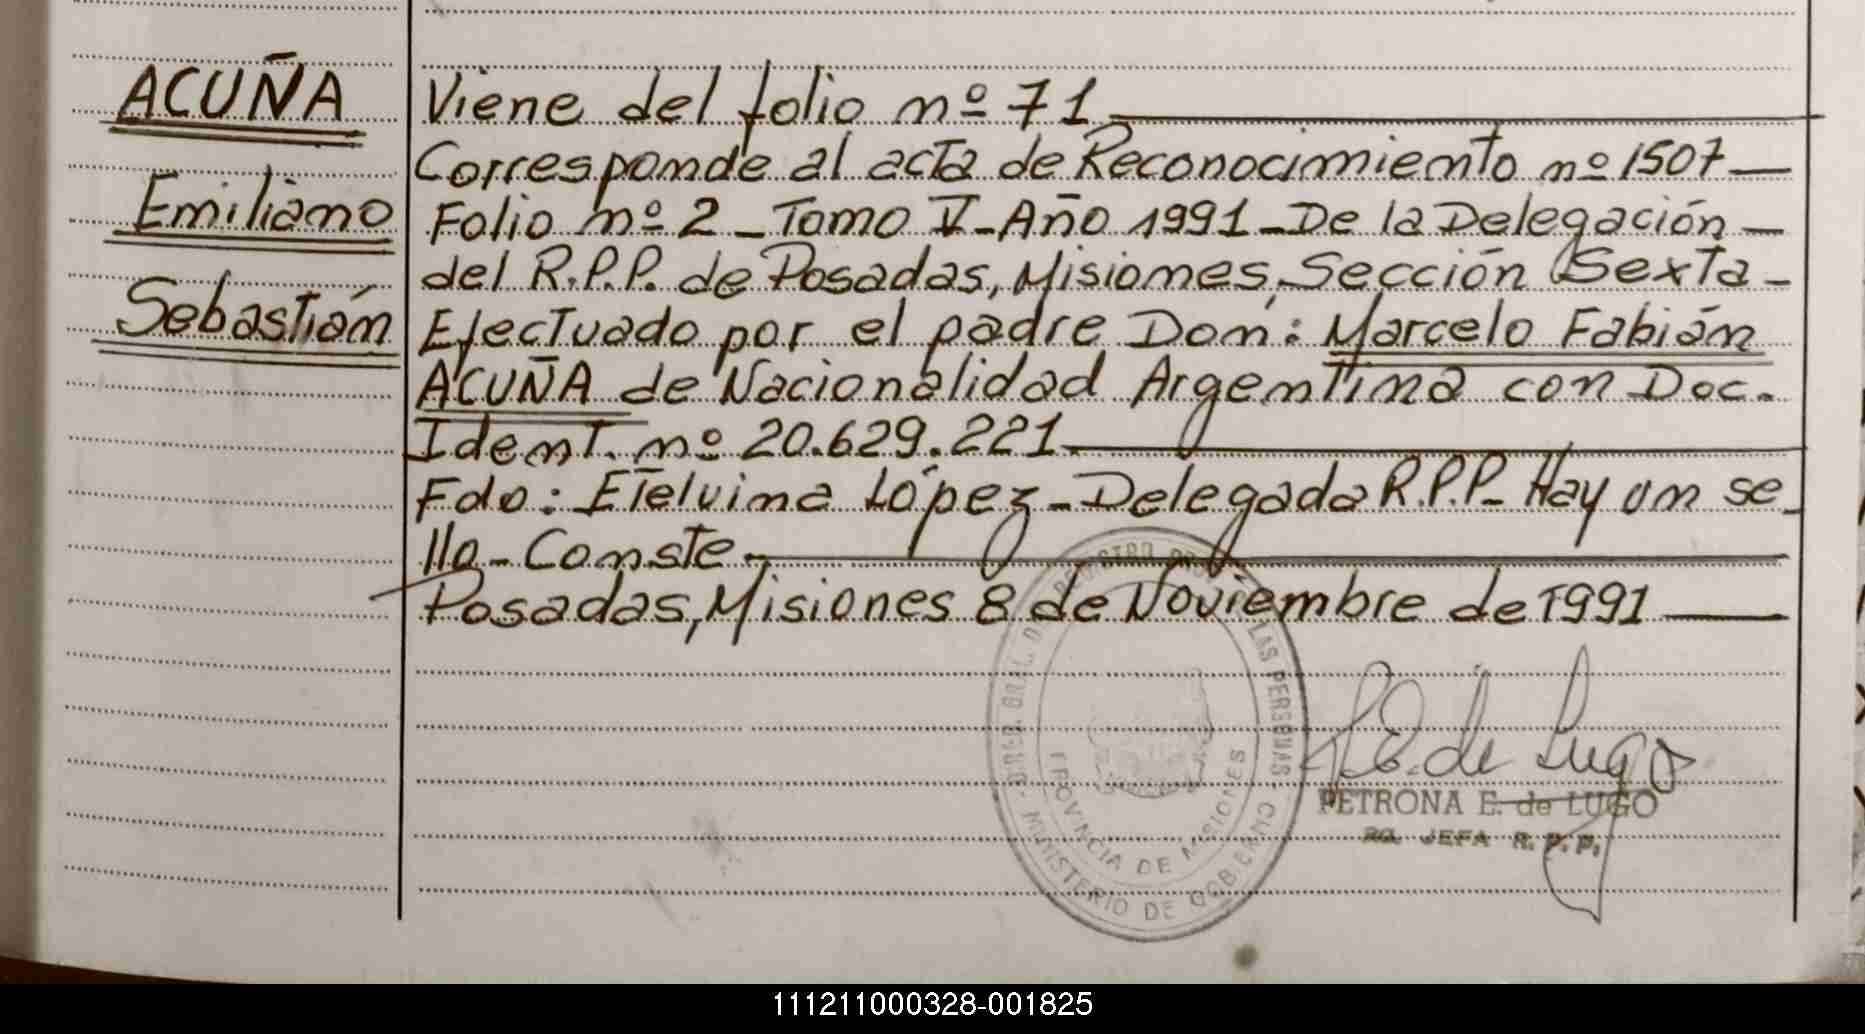 ACUÑA
Emiliano
Sebastián
Viene del folio nº 71
Corresponde al acta de Reconocimiento nº 1507
Folio nº 2 - Tomo V - Año 1991 - De la Delegación
del R.P.P. de Posadas, Misiones, Sección Sexta -
Efectuado por el padre Don: Marcelo Fabián
ACUÑA de Nacionalidad Argentina con Doc.
Ident. nº 20.629.221.
Fdo: Etelvina López - Delegada R.P.P - Hay un se-
llo - Conste -
Posadas, Misiones 8 de Noviembre de 1991
DIREC. GRAL. DEL REGISTRO PROV. DE LAS PERSONAS
MINISTERIO DE GOBIERNO
PROVINCIA DE MISIONES
P.E. de Lugo
PETRONA E. de LUGO
JEFA R. P. P.
111211000328-001825